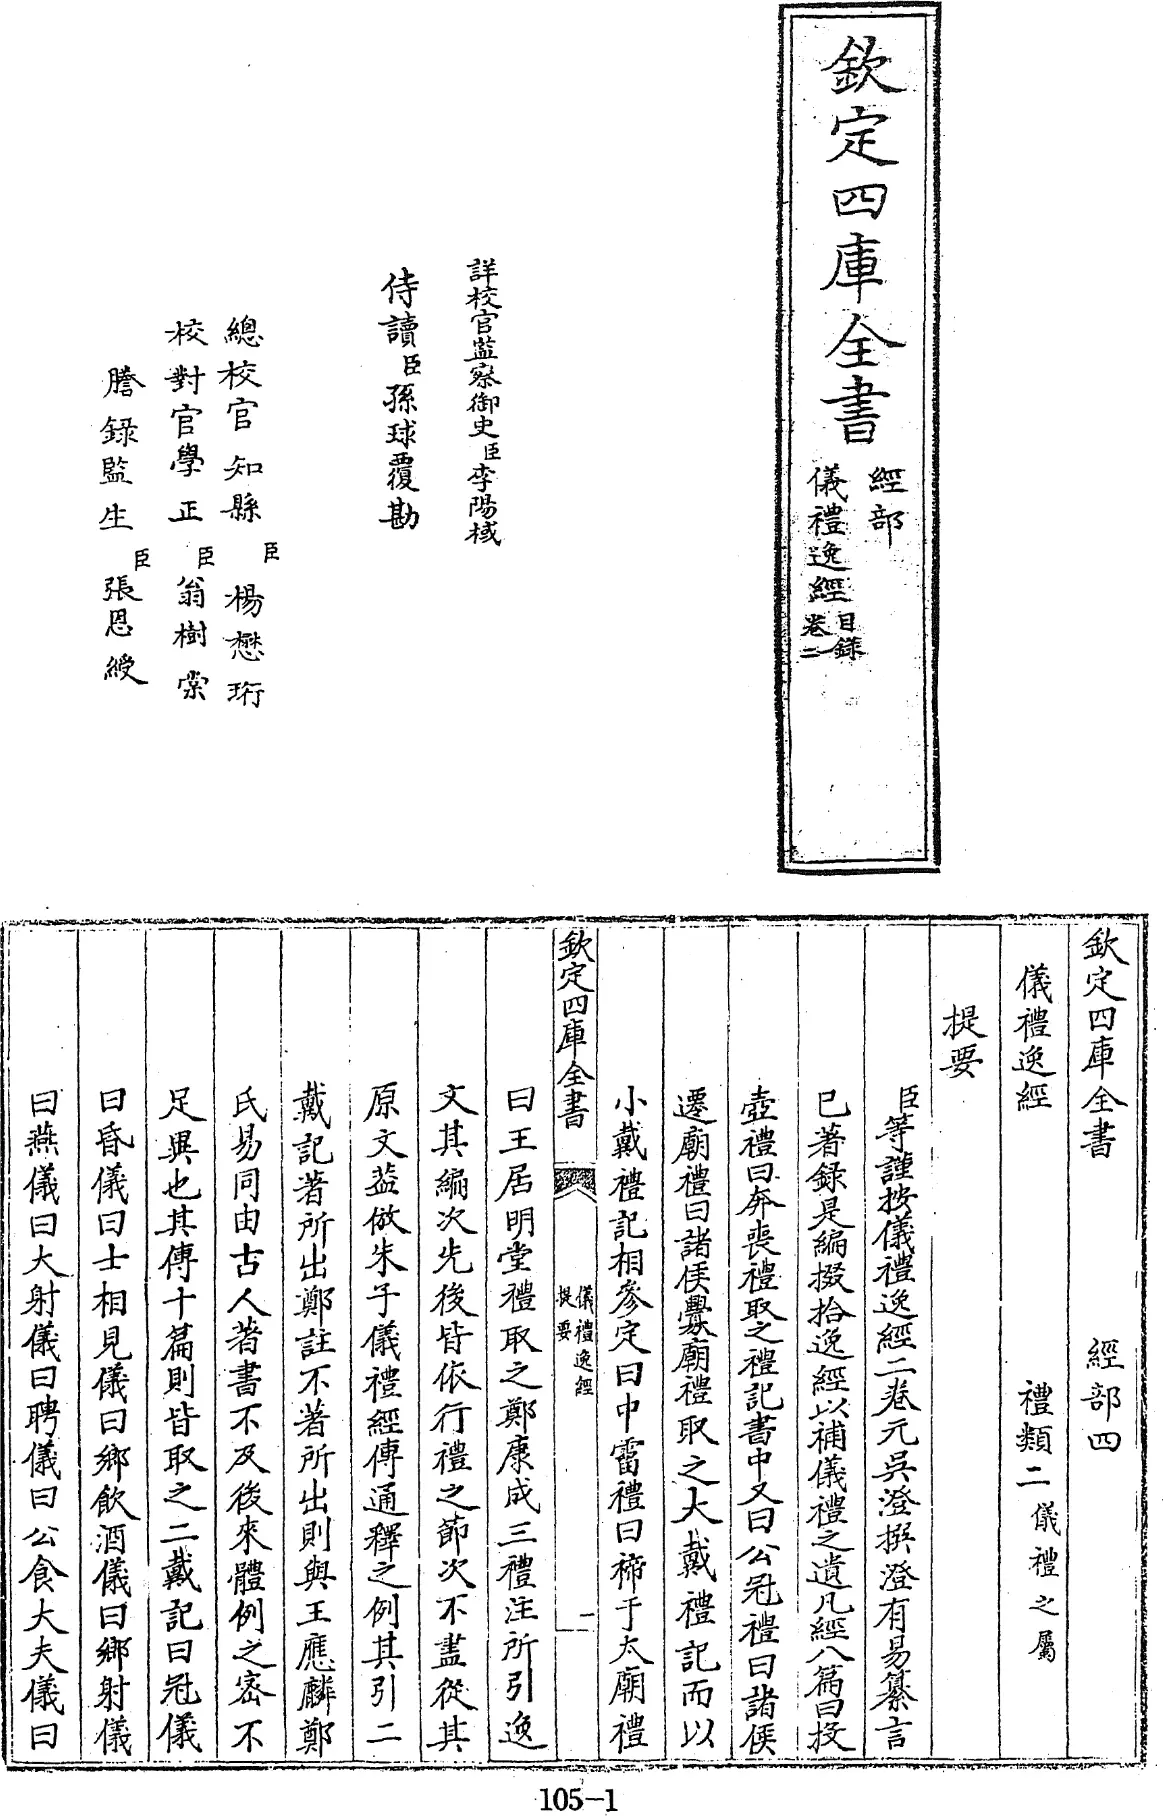 欽定四庫全書
經部
儀禮逸經
目錄
卷二
詳校官監察御史臣李陽棫
侍讀臣孫球覆勘
總校官知縣臣楊懋珩
校對官學正臣翁樹棠
謄錄監生臣張恩綬
欽定四庫全書 經部四
儀禮逸經 禮類二儀禮之屬
提要
臣等謹按儀禮逸經二卷元吳澄撰澄有易纂言
已著錄是編掇拾逸經以補儀禮之遺凡經八篇曰投
壺禮曰奔喪禮取之禮記書中又曰公冠禮曰諸侯
遷廟禮曰諸侯釁廟禮取之大戴禮記而以
小戴禮記相參定曰中霤禮曰禘于太廟禮
欽定四庫全書
儀禮逸經
提要
一
曰王居明堂禮取之鄭康成三禮注所引逸
文其編次先後皆依行禮之節次不盡從其
原文葢倣朱子儀禮經傳通釋之例其引二
戴記著所出鄭註不著所出則與王應麟鄭
氏易同由古人著書不及後來體例之密不
足異也其傳十篇則皆取之二戴記曰冠儀
曰昏儀曰士相見儀曰鄉飲酒儀曰鄉射儀
曰燕儀曰大射儀曰聘儀曰公食大夫儀曰
105-1